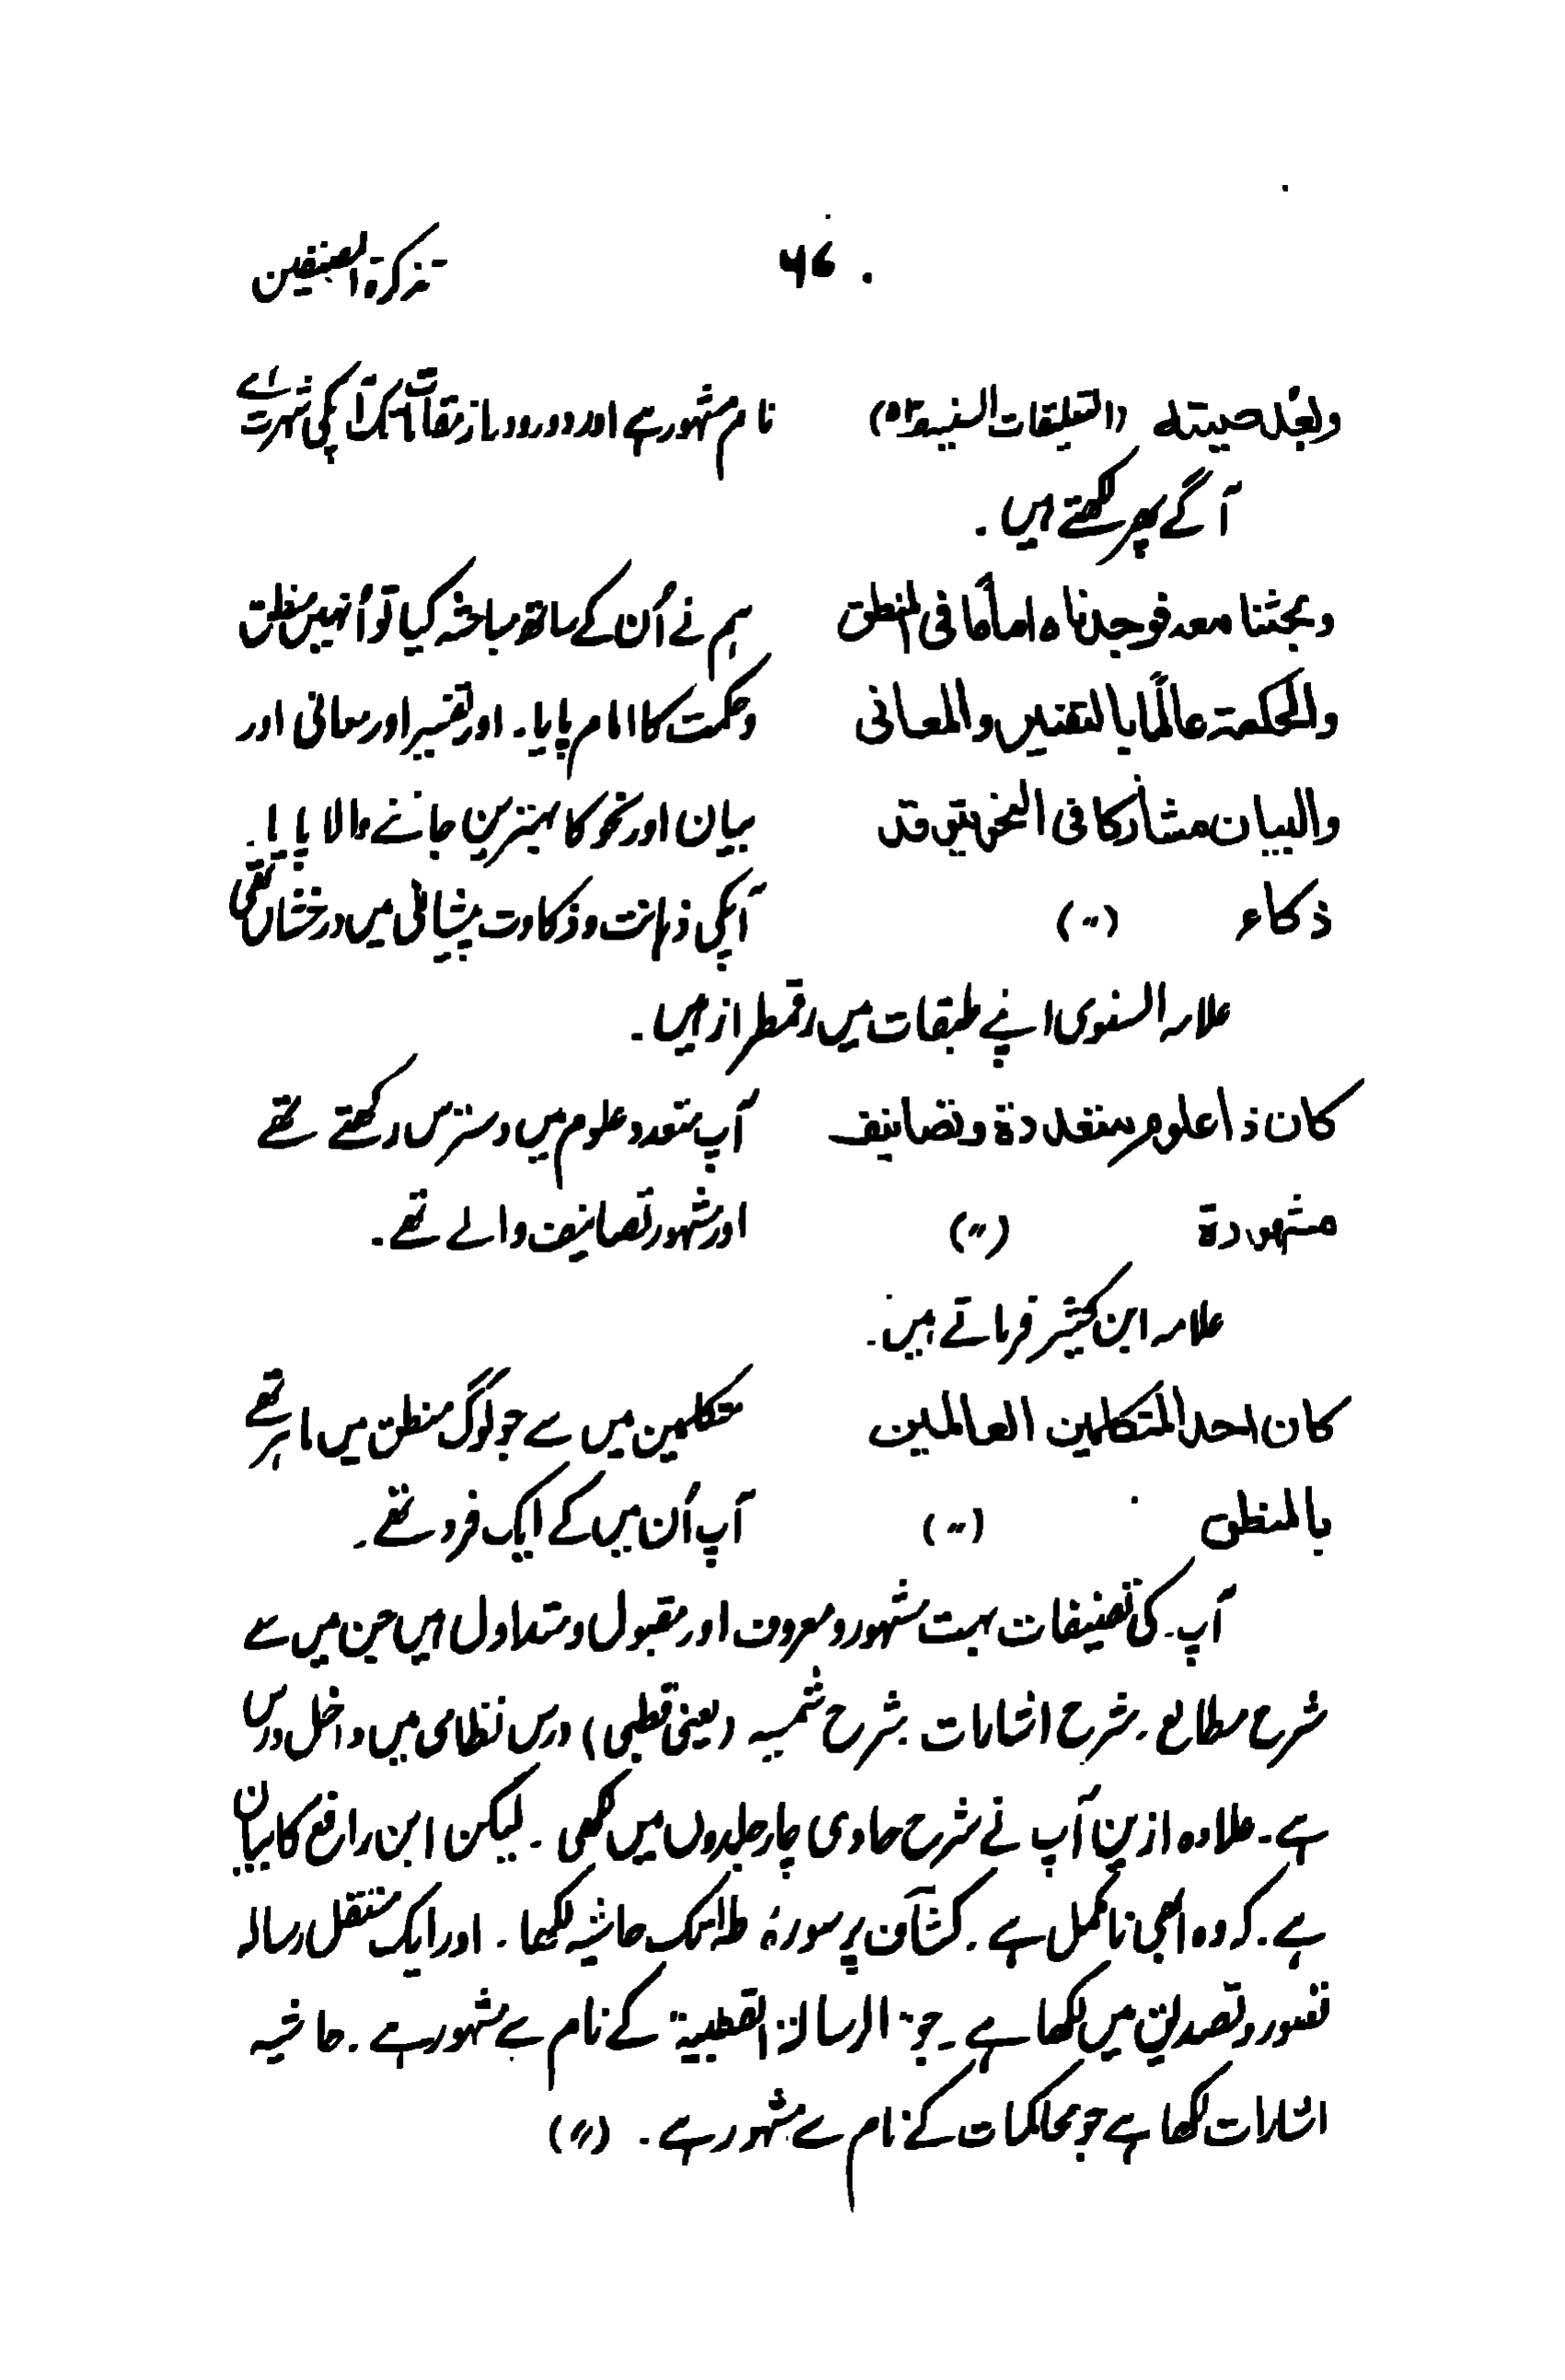 تذکرۃ المصنفین ۶۷
وبعُد صیتہ (التعلیقات السنیہ) نام مشہور ہے اور دور دراز مقامات تک آپکی شہرت ہے
آگے پھر لکھتے ہیں .
وبحثنا معہ فوجدناہ اماما فی المنطق ہم نے اُن کے ساتھ مباحثہ کیا تو اُنہیں منطق
والحکمۃ عالمًا بالتفسیر والمعانی وحکمت کا امام پایا۔ اور تفسیر اور معانی اور
والبیان مشارکا فی النحو یتوقد بیان اور نحو کا بہترین جاننے والا پایا۔
ذکاء (〃) آپکی ذہانت وذکاوت پیشانی میں درخشاں تھی
علامہ السنوی اپنے طبقات میں رقمطراز ہیں ۔
کان ذا علوم متعددۃ وتصانیف آپ متعدد علوم میں دسترس رکھتے تھے
مشہورۃ (〃) اور مشہور تصانیف والے تھے ۔
علامہ ابن کثیر فرماتے ہیں ۔
کان احد المتکلمین العالمین متکلمین میں سے جو لوگ منطق میں ماہر تھے
بالمنطق (〃) آپ اُن میں کے ایک فرد تھے ۔
آپ کی تصنیفات بہت مشہور و معروف اور مقبول و متداول ہیں جن میں سے
شرح مطالع ۔ شرح اشارات ۔ شرح شمسیہ (یعنی قطبی) درس نظامی میں داخل درس
ہے ۔ علاوہ ازین آپ نے شرح حاوی چار جلدوں میں لکھی ۔ لیکن ابن رافع کا بیان
ہے ۔ کہ وہ ابھی نامکمل ہے ۔ کشّاف پر سورۂ طٰہٰ تک حاشیہ لکھا ۔ اور ایک مستقل رسالہ
تصور و تصدیق میں لکھا ہے ۔ جو الرسالۃ القطبیۃ کے نام سے مشہور ہے ۔ حاشیہ
اشارات لکھا ہے جو محاکمات کے نام سے مشہور ہے ۔ (〃)